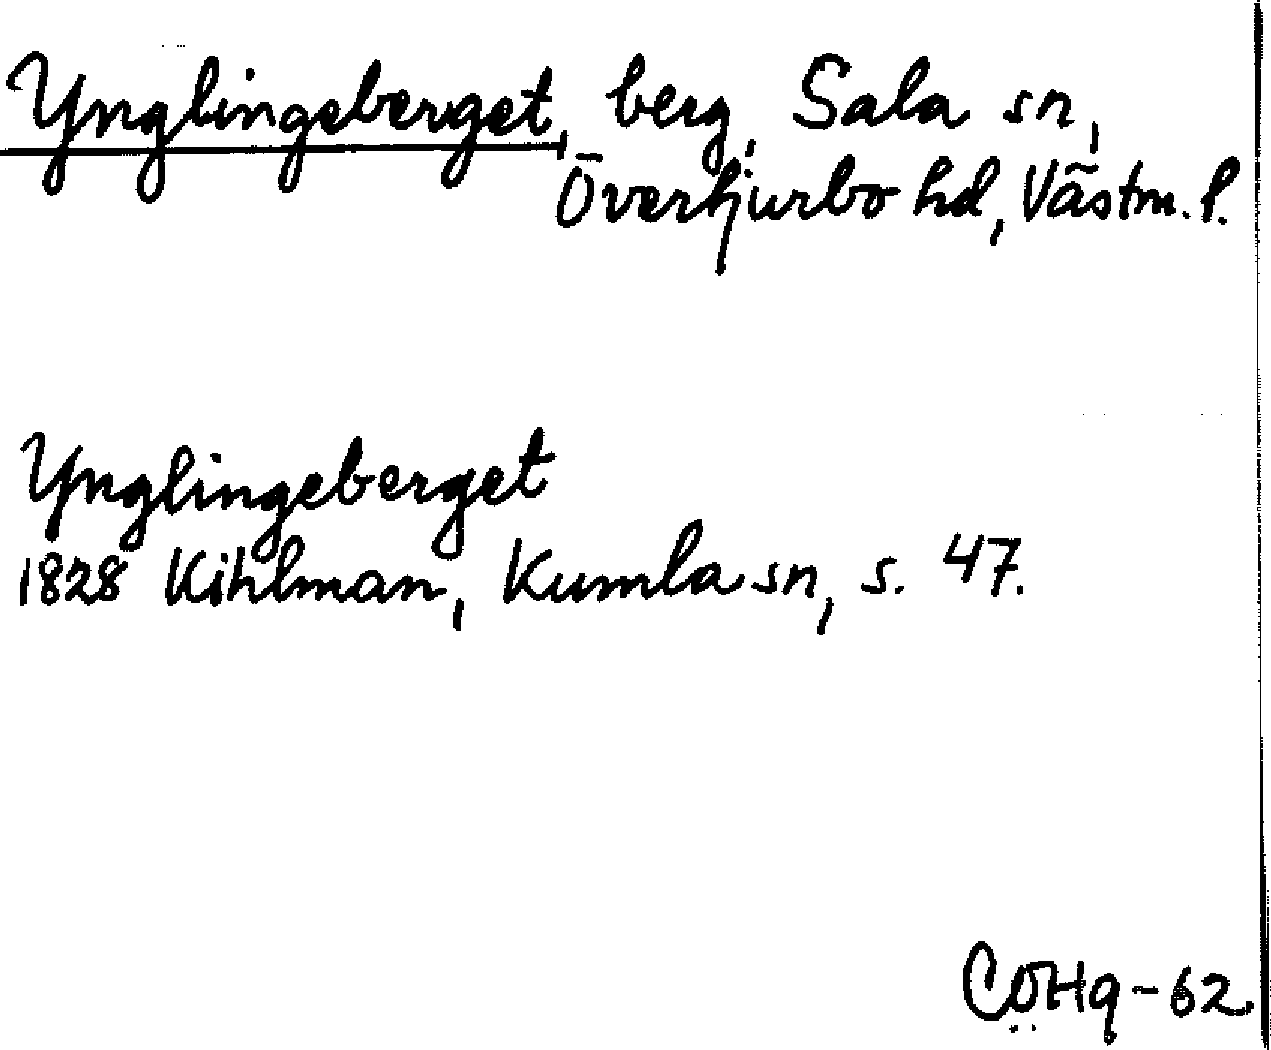 Ynglingeberget, berg, Sala sn,
Övertjurbo hd, Västm. l.
Ynglingeberget
1828 Kihlman, Kumla sn, s. 47.